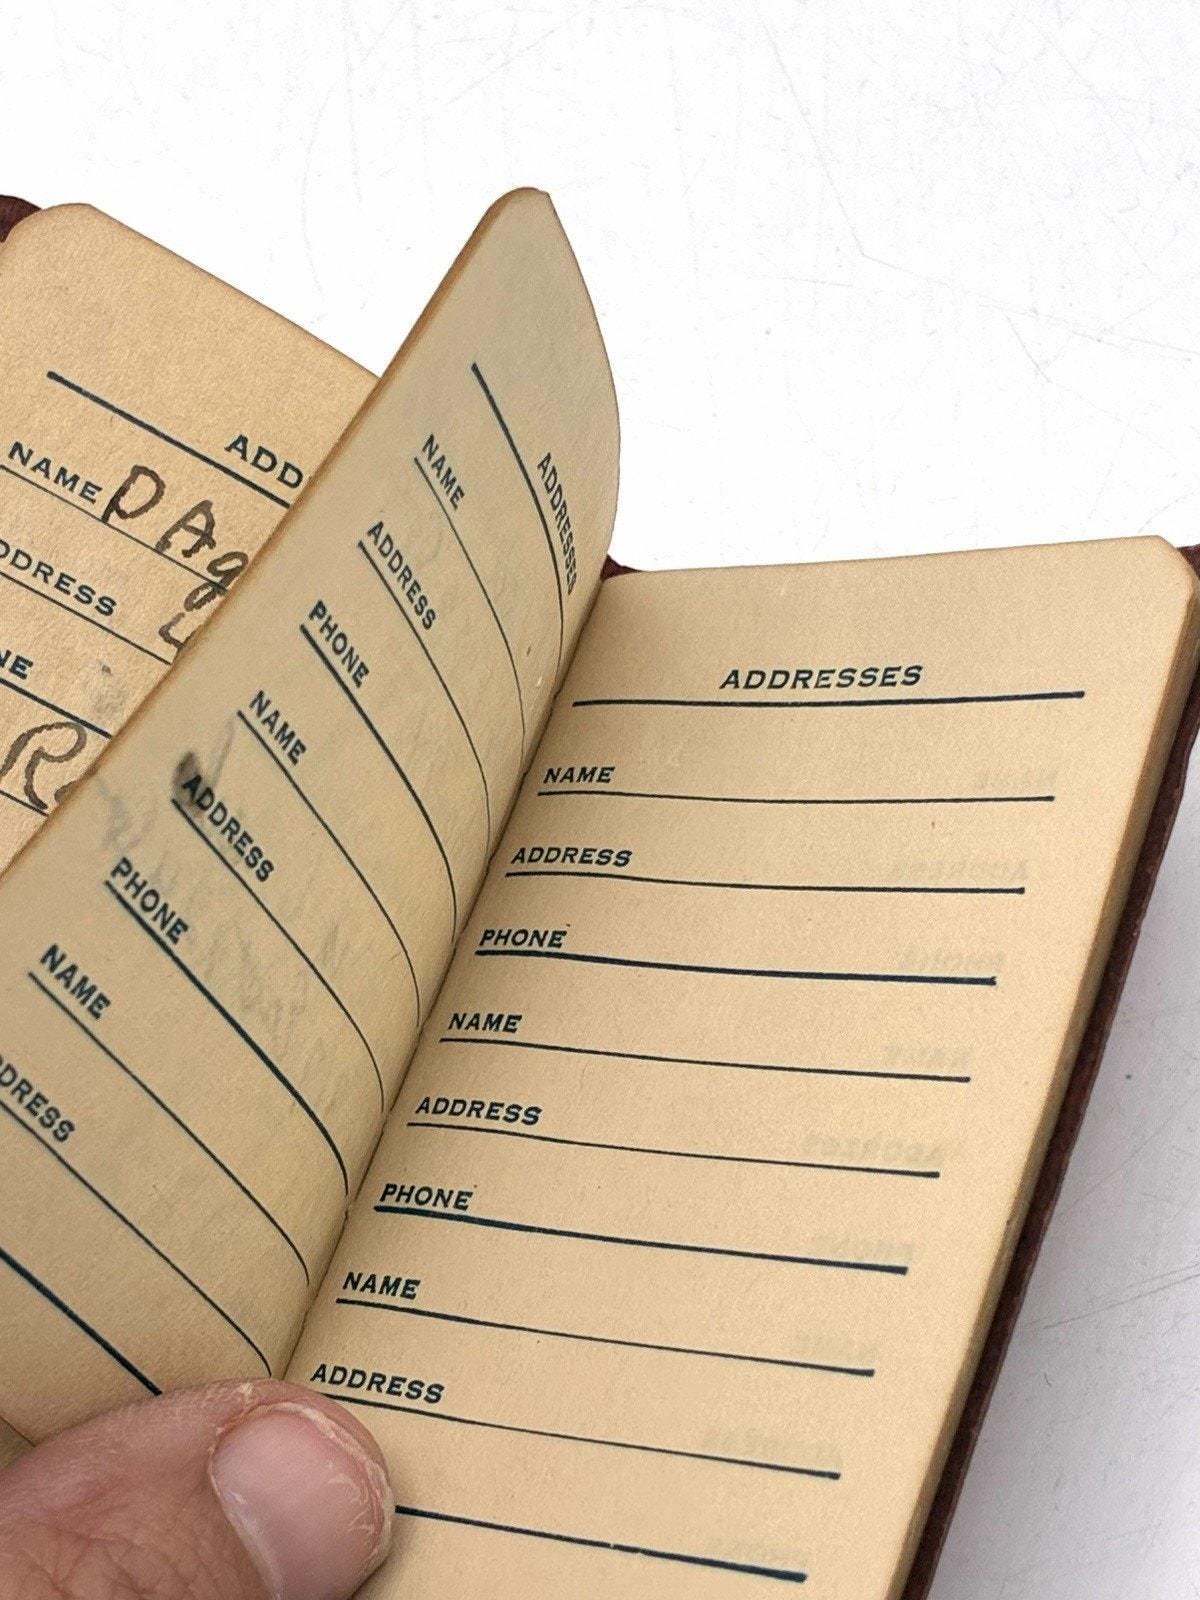 ADD
NAME DAg
DDRESS
NE
ADDRESSES
NAME
ADDRESS
PHONE
NAME
ADDRESS
PHONE
NAME
DRESS
ADDRESSES
NAME
ADDRESS
PHONE
NAME
ADDRESS
PHONE
NAME
ADDRESS